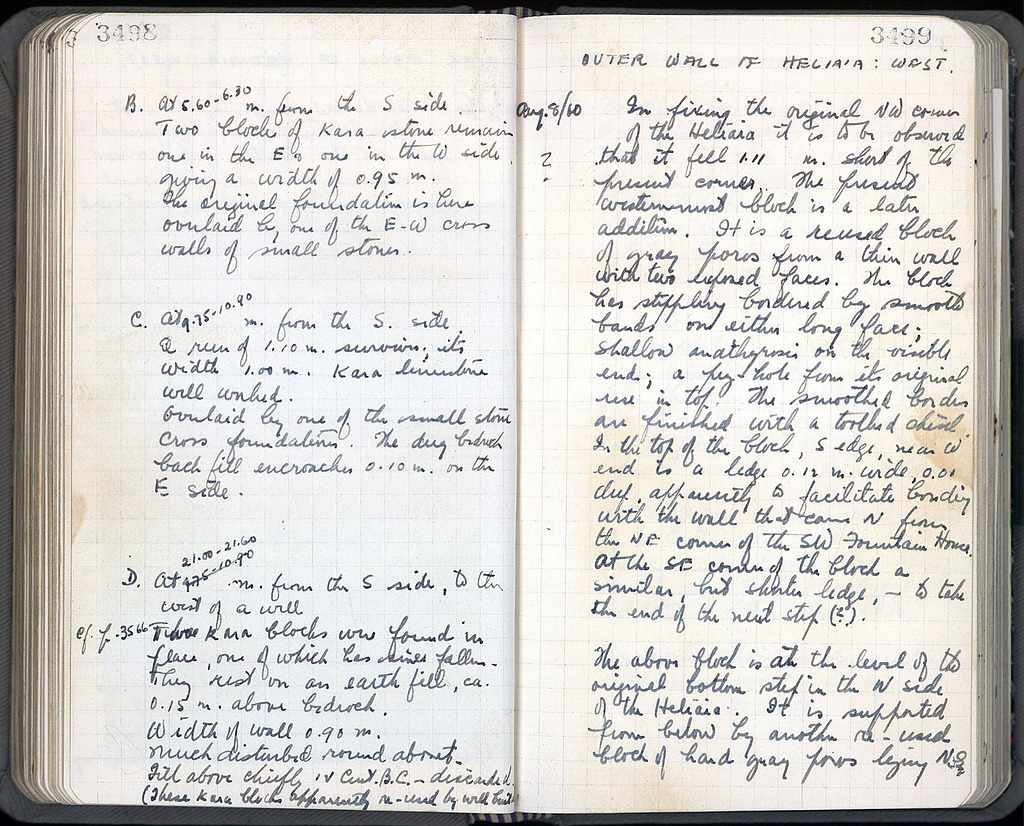 3498
B. At 5.60-6.30 m. from the S side.
Two blocks of Kara stone remain
one in the E & one in the W side
giving a width of 0.95 m.
The original foundation is here
overlaid by one of the E-W cross
walls of small stones.
C. At 9.75-10.90 m. from the S. side
A run of 1.10 m. survives; its
width 1.00 m. Kara limestone
well worked.
Overlaid by one of the small stone
cross foundations. The dug bedrock
back fill encroaches 0.10 m. on the
E side.
21.00-21.60
D. At 9.75-10.90 m. from the S side, to the
west of a well
cf. p. 3566 Three Kara blocks were found in
place, one of which has since fallen.
They rest on an earth fill, ca.
0.15 m. above bedrock.
Width of wall 0.90 m.
Much disturbed round about.
Fill above chiefly IV Cent. B.C. - discarded.
(These Kara blocks apparently re-used by well
3499
OUTER WALL OF HELIAIA: WEST.
Aug. 8/60 In fixing the original NW corner
of the Heliaia it is to be observed
? that it fell 1.11 m. short of the
present corner. The present
westernmost block is a later
addition. It is a reused block
of gray poros from a thin wall
with two exposed faces. The block
has stippling bordered by smooth
bands on either long face;
shallow anathyrosis on the visible
end; a pry-hole from its original
use in top. The smoothed borders
are finished with a toothed chisel.
In the top of the block, S edge, near W
end is a ledge 0.12 m. wide, 0.01
deep, apparently to facilitate bonding
with the wall that came N from
the NE corner of the SW Fountain House.
At the SE corner of the block a
similar, but shorter ledge, - to take
the end of the next step (?).
The above block is at the level of the
original bottom step in the N side
of the Heliaia. It is supported
from below by another re-used
block of hard gray poros lying N-S